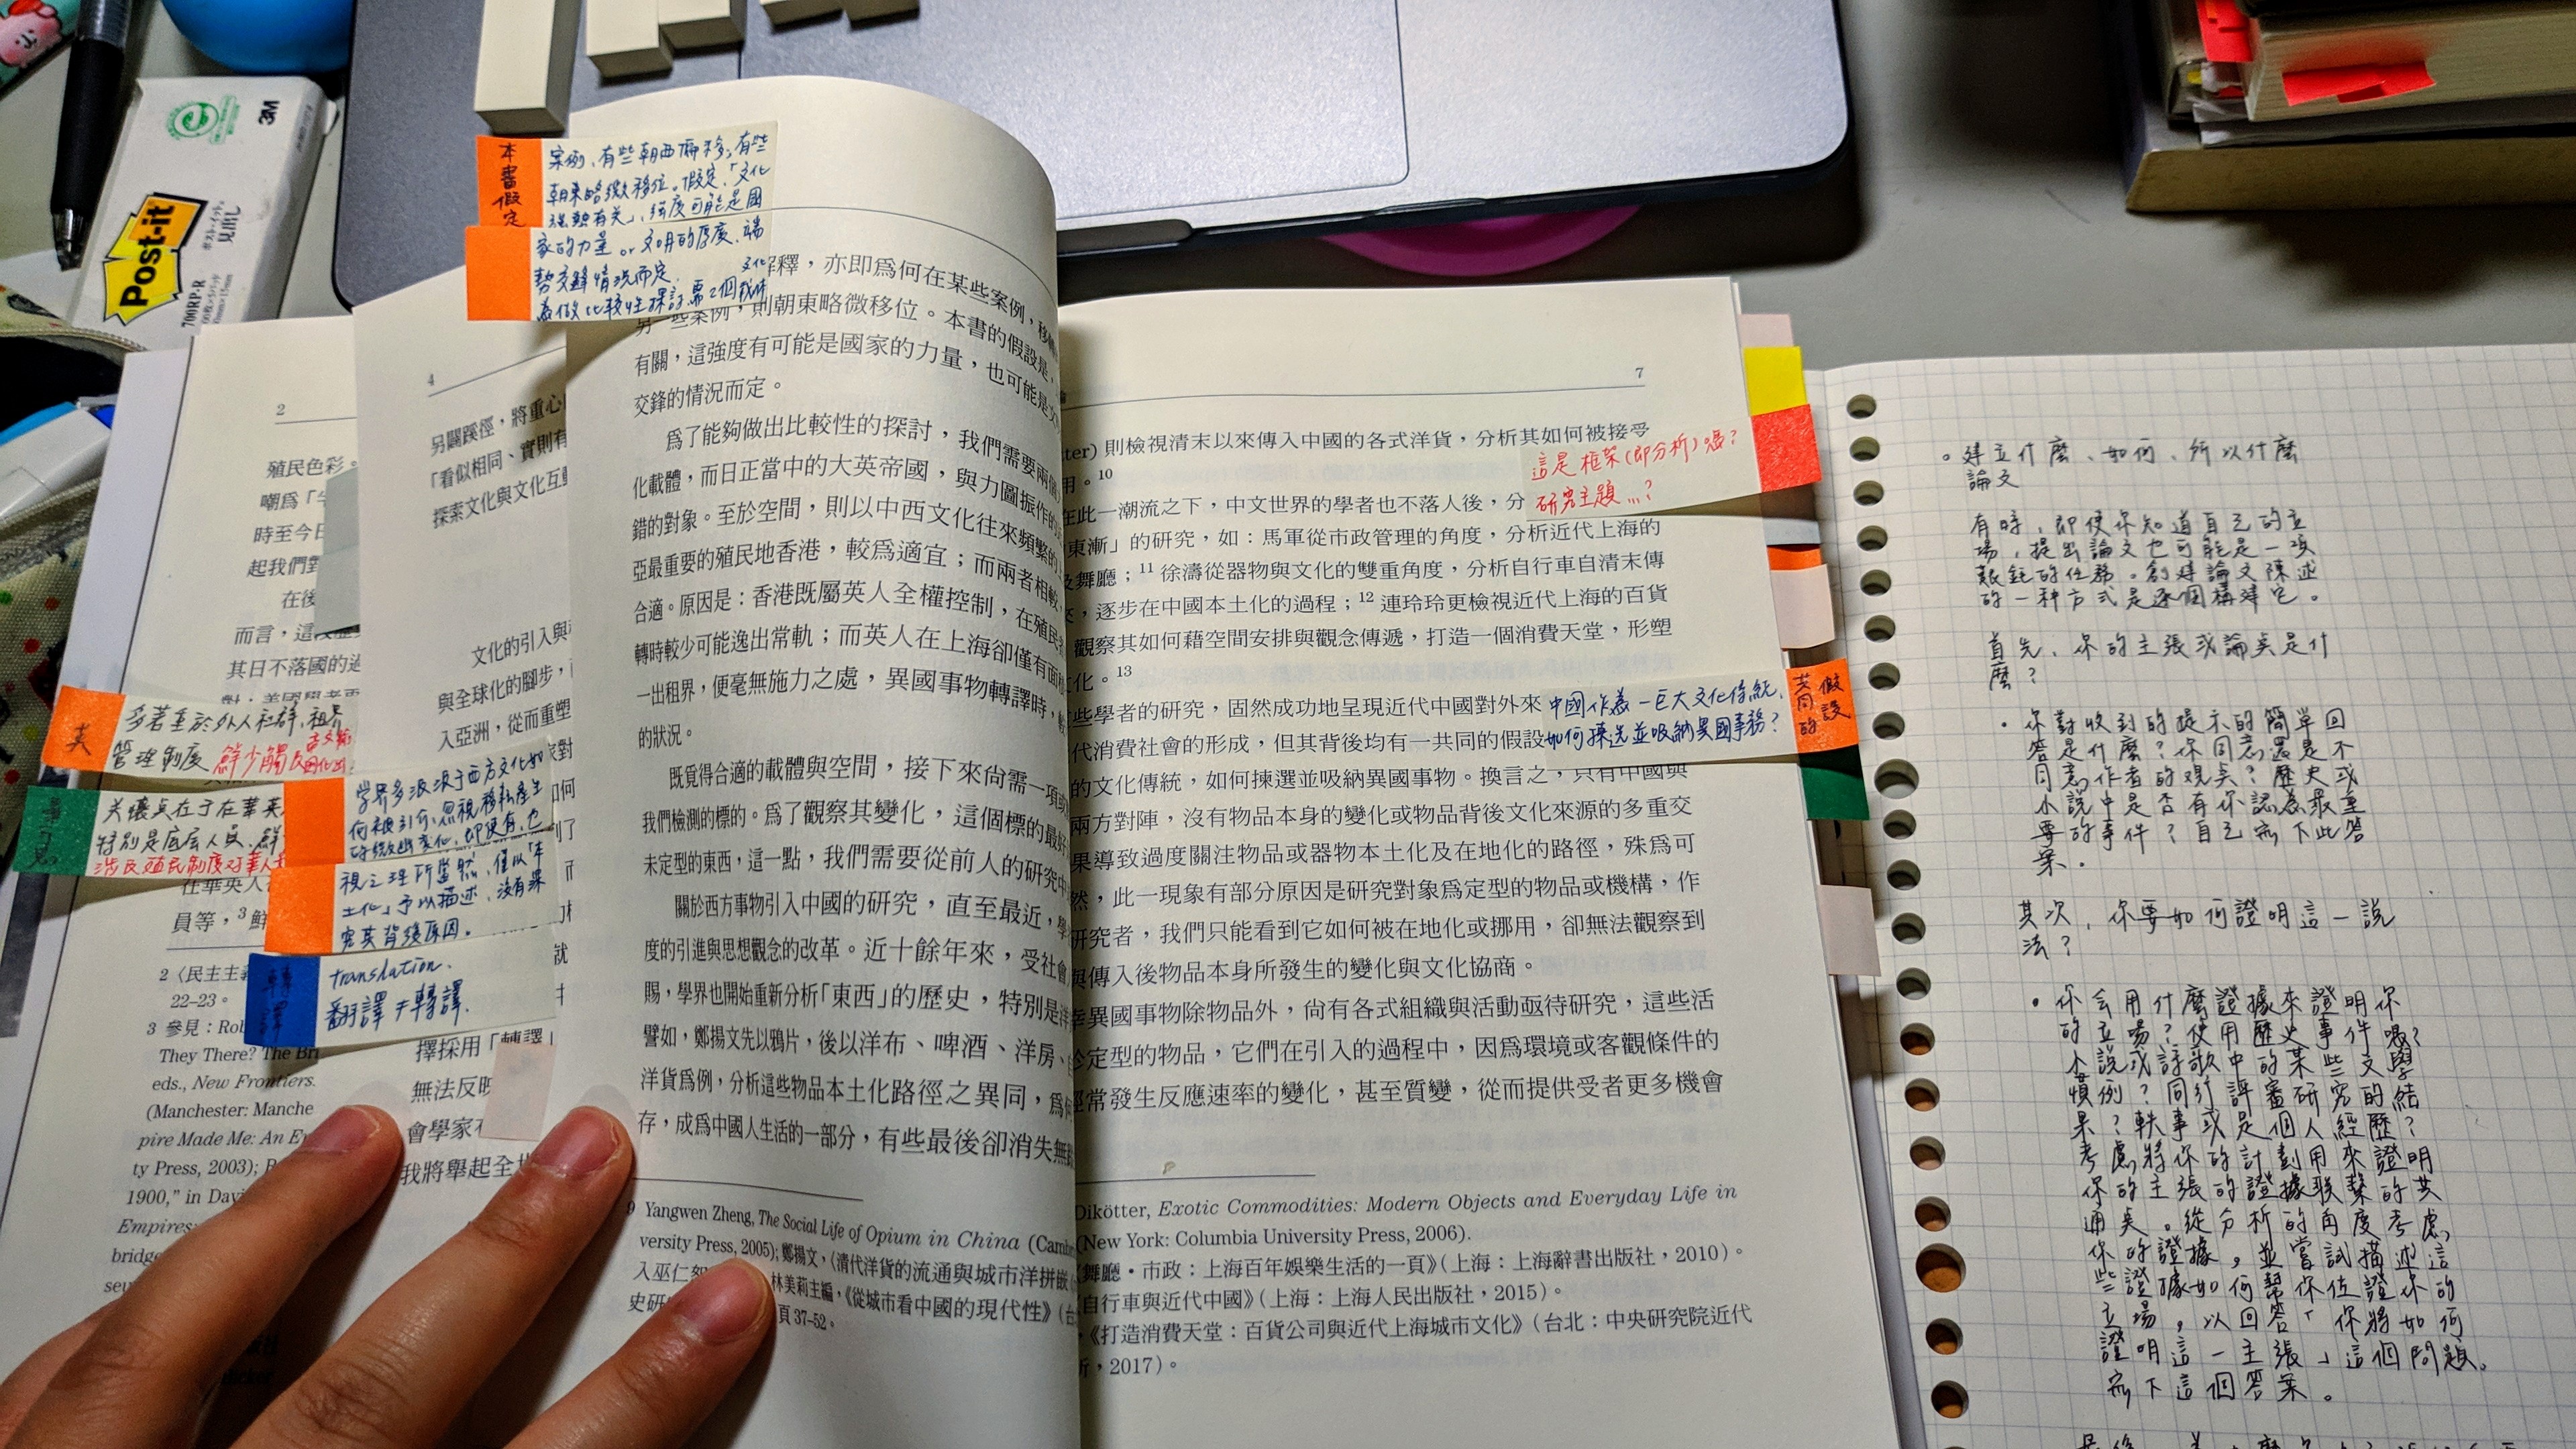 3M
Post-it
700RP-R
見出し
本書假定
案例,有些朝西挪移,有些
朝東略微移位。假定,「文化
強勢有关」,強度可能是國
家的力量 or 文明的厚度,端
勢交鋒情況而定.
為做比較性探討,需2個
文化
2
殖民色彩。
嘲為「
時至今日
起我們對
在後
而言,這
其日不落國的
多著重於外人社群、租界
管理制度 鮮少觸及
关懷点在于在華英
特別是底层人員.鮮
涉及殖民制度对華人
在華英人
員等,³鮮
2〈民主主義
22–23。
3 參見:Rob
They There? The Bri
eds., New Frontiers.
(Manchester: Manche
pire Made Me: An E
ty Press, 2003);
1900," in Davi
Empires
bridge
4
另闢蹊徑,將重心
「看似相同、實則有
探索文化與文化互動
文化的引入與
與全球化的腳步,
入亞洲,從而重塑
學界多汲汲于西方文化如
何被引介,忽視移転產生
的微幽变化,即便有,也
視之理所當然,僅以「本
土化」予以描述,没有深
究其背後原因。
轉譯
translation.
翻譯≠轉譯.
擇採用「轉譯」
無法反映
會學家
我將舉起全世
解釋,亦即為何在某些案例,移
另一些案例,則朝東略微移位。本書的假設是,
有關,這強度有可能是國家的力量,也可能是文
交鋒的情況而定。
為了能夠做出比較性的探討,我們需要兩個
化載體,而日正當中的大英帝國,與力圖振作的
錯的對象。至於空間,則以中西文化往來頻繁的上
亞最重要的殖民地香港,較為適宜;而兩者相較,
合適。原因是:香港既屬英人全權控制,在殖民
轉時較少可能逸出常軌;而英人在上海卻僅有面
一出租界,便毫無施力之處,異國事物轉譯時,
的狀況。
既覓得合適的載體與空間,接下來尚需一項
我們檢測的標的。為了觀察其變化,這個標的最好
未定型的東西,這一點,我們需要從前人的研究中
關於西方事物引入中國的研究,直至最近,學
度的引進與思想觀念的改革。近十餘年來,受社會
賜,學界也開始重新分析「東西」的歷史,特別是洋
譬如,鄭揚文先以鴉片,後以洋布、啤酒、洋房、
洋貨為例,分析這些物品本土化路徑之異同,為何
存,成為中國人生活的一部分,有些最後卻消失無
9 Yangwen Zheng, The Social Life of Opium in China (Camb
versity Press, 2005); 鄭揚文,〈清代洋貨的流通與城市洋拼嵌
入巫仁恕
林美莉主編,《從城市看中國的現代性》(台
史研
頁37–52。
7
ter) 則檢視清末以來傳入中國的各式洋貨,分析其如何被接受
用。¹⁰
這是框架(即分析)嗎?
研究主題…?
在此一潮流之下,中文世界的學者也不落人後,分
東漸」的研究,如:馬軍從市政管理的角度,分析近代上海的
及舞廳;¹¹ 徐濤從器物與文化的雙重角度,分析自行車自清末傳
來,逐步在中國本土化的過程;¹² 連玲玲更檢視近代上海的百貨
觀察其如何藉空間安排與觀念傳遞,打造一個消費天堂,形塑
文化。¹³
些學者的研究,固然成功地呈現近代中國對外來
代消費社會的形成,但其背後均有一共同的假設
中國作為一巨大文化傳統,
如何揀选並吸納異國事務?
共同的
假設
的文化傳統,如何揀選並吸納異國事物。換言之,只有中國與
兩方對陣,沒有物品本身的變化或物品背後文化來源的多重交
果導致過度關注物品或器物本土化及在地化的路徑,殊為可
然,此一現象有部分原因是研究對象為定型的物品或機構,作
研究者,我們只能看到它如何被在地化或挪用,卻無法觀察到
與傳入後物品本身所發生的變化與文化協商。
異國事物除物品外,尚有各式組織與活動亟待研究,這些活
定型的物品,它們在引入的過程中,因為環境或客觀條件的
常發生反應速率的變化,甚至質變,從而提供受者更多機會
Dikötter, Exotic Commodities: Modern Objects and Everyday Life in
(New York: Columbia University Press, 2006).
舞廳・市政:上海百年娛樂生活的一頁》(上海:上海辭書出版社,2010)。
自行車與近代中國》(上海:上海人民出版社,2015)。
《打造消費天堂:百貨公司與近代上海城市文化》(台北:中央研究院近代
所,2017)。
。建立什麼、如何、所以什麼
論文
有時,即使你知道自己的立
場,提出論文也可能是一項
艱鉅的任務。創建論文陳述
的一种方式是逐個構建它。
首先,你的主張或論点是什
麼?
・你對收到的提示的簡單回
答是什麼?你同意還是不
同意作者的观点?歷史或
小說中是否有你認為最重
要的事件?自己寫下此答
案.
其次,你要如何證明這一說
法?
・你会用什麼證據來證明你
的立場?使用歷史事件嗎?
小說或詩歌中的某些文學
慣例?同行評審研究的結
果?軼事或是個人經歷?
考慮將你的計劃用來證明
你的主張的證據联繫的共
通点。從分析的角度考慮
你的證據,並嘗試描述這
些證據如何幫你佐證你的
立場,以回答「你將如何
證明這一主張」這個問題。
寫下這個答案。